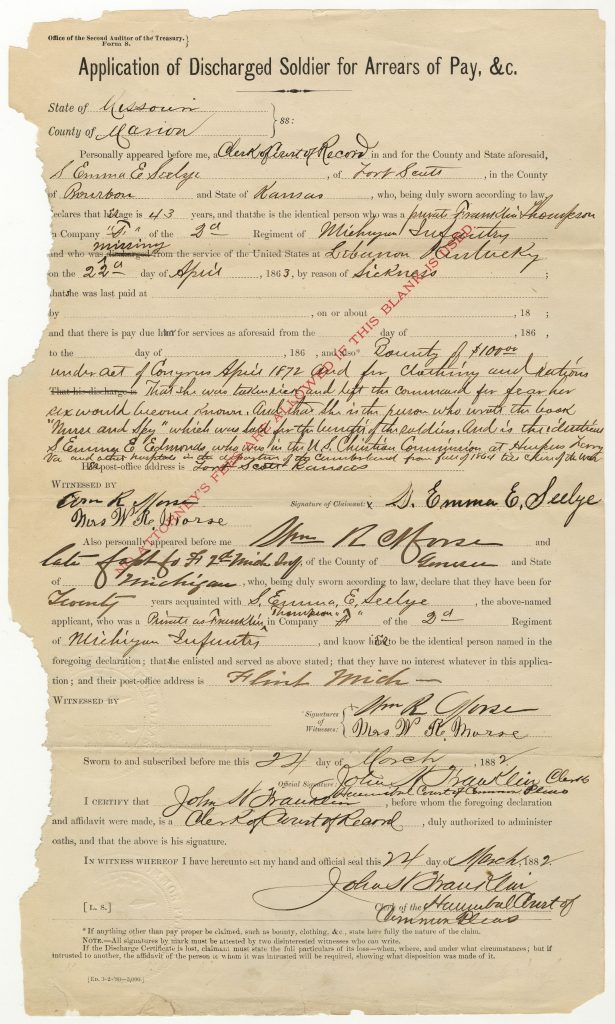 Office of the Second Auditor of the Treasury.}
Form 8.
Application of Discharged Soldier for Arrears of Pay, &c.
State of Missouri
County of Marion } ss:
Personally appeared before me, a Clerk of Court of Record in and for the County and State aforesaid,
S Emma E Seelye, of Fort Scott, in the County
of Bourbon and State of Kansas, who, being duly sworn according to law,
declares that her age is 43 years, and that she is the identical person who was a private Franklin Thompson
in Company "F" of the 2d Regiment of Michigan Infantry
missing
and who was discharged from the service of the United States at Lebanon Kentucky
on the 22d day of April, 1863, by reason of Sickness;
that she was last paid at
by , on or about , 18 ;
and that there is pay due her for services as aforesaid from the day of , 186 ,
to the day of , 186 , and also* Bounty of $100.00
under act of Congress April 1872 and for clothing and rations
That his discharge is That she was taken sick and left the command for fear her
sex would become known. And that she is the person who wrote the book
"Nurse and Spy" which was sold for the benefit of the soldiers. And is the identical
S. Emma E. Edmonds who was in the U.S. Christian Commission at Harpers Ferry
Va and other hospitals in the department of the Cumberland from fall of 1864 till close of the war
Her post-office address is Fort Scott Kansas
NO ATTORNEY'S FEE ALLOWED IF THIS BLANK IS USED.
WITNESSED BY
Wm R Morse
Mrs W. R. Morse
Signature of Claimant: x S. Emma E. Seelye
Also personally appeared before me Wm R Morse and
late Capt Co F 2d Mich Inf, of the County of Genesee and State
of Michigan, who, being duly sworn according to law, declare that they have been for
Twenty years acquainted with S. Emma. E. Seelye, the above-named
applicant, who was a Private as Franklin Thompson in Company "F" of the 2d Regiment
of Michigan Infantry, and know her to be the identical person named in the
foregoing declaration; that she enlisted and served as above stated; that they have no interest whatever in this applica-
tion; and their post-office address is Flint Mich
WITNESSED BY
Signatures of Witnesses: { Wm R Morse
Mrs W. R. Morse
Sworn to and subscribed before me this 24 day of March, 1882
Official Signature, John N Franklin Clerk
Hannibal Court of Common Pleas
I CERTIFY that John N Franklin, before whom the foregoing declaration
and affidavit were made, is a Clerk of Court of Record, duly authorized to administer
oaths, and that the above is his signature.
IN WITNESS WHEREOF I have hereunto set my hand and official seal this 24 day of March, 1882.
John N Franklin
[L. S.] Clerk of the Hannibal Court of
Common Pleas
* If anything other than pay proper be claimed, such as bounty, clothing, &c., state here fully the nature of the claim.
NOTE.—All signatures by mark must be attested by two disinterested witnesses who can write.
If the Discharge Certificate is lost, claimant must state the full particulars of its loss—when, where, and under what circumstances; but if
intrusted to another, the affidavit of the person to whom it was intrusted will be required, showing what disposition was made of it.
[ED. 3-2-'80—5,000.]